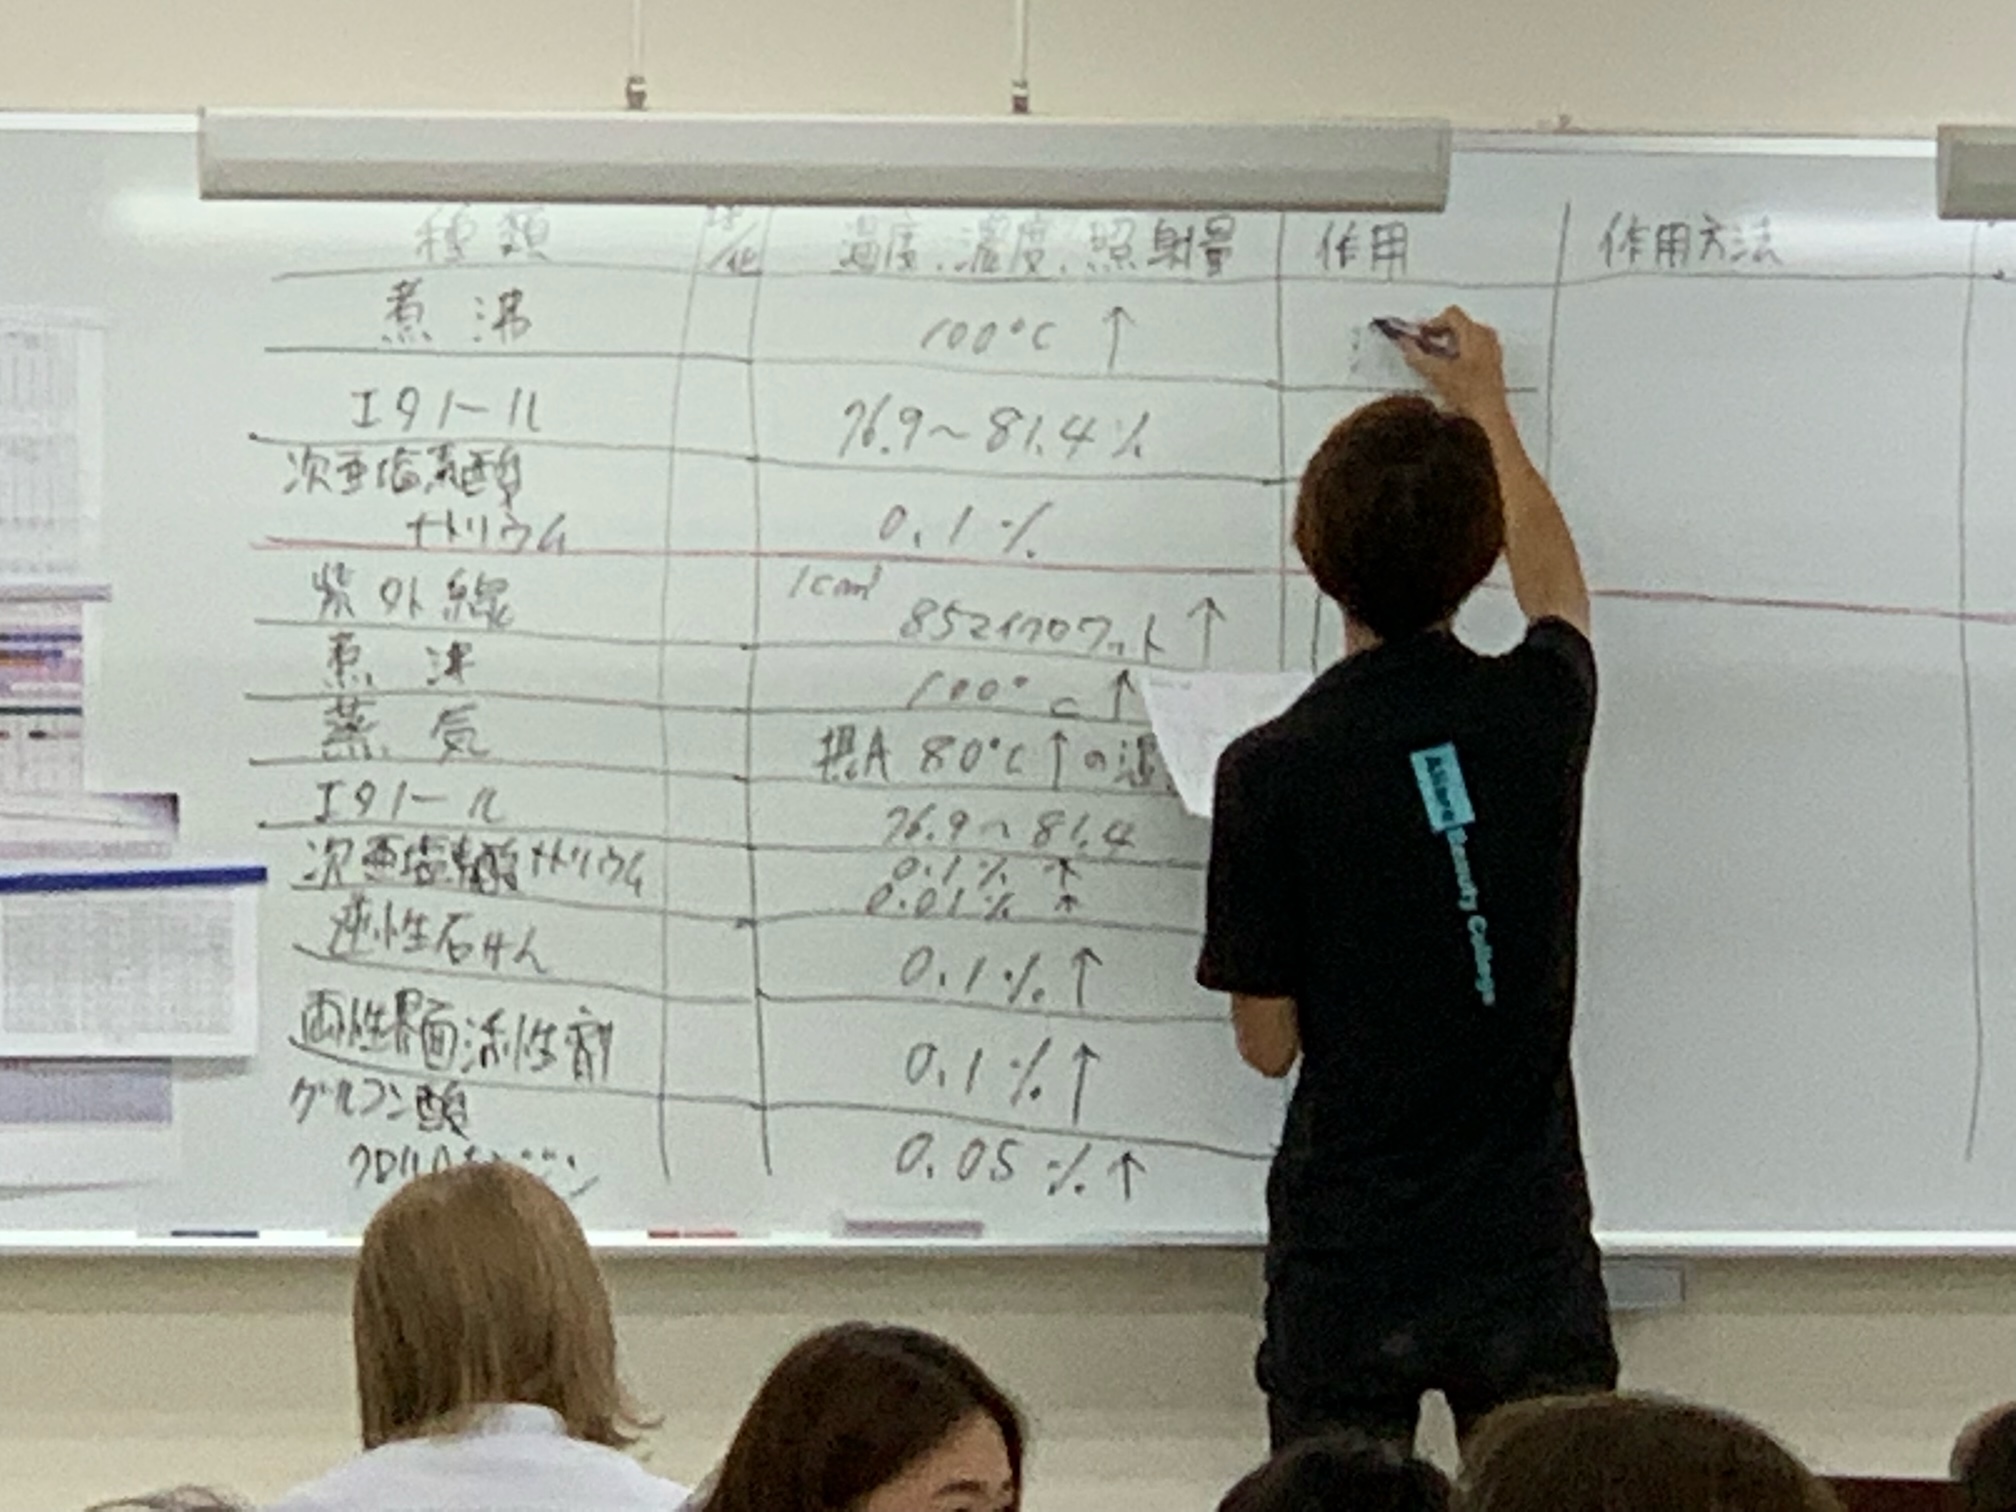 種類 物/化 温度、濃度、照射量 作用 作用方法
煮沸 100°C ↑
エタノール 76.9～81.4%
次亜塩素酸
ナトリウム 0.1%
紫外線 1cm² 85マイクロワット ↑
煮沸 100°C ↑
蒸気 80°C ↑の
エタノール 76.9～81.4
次亜塩素酸ナトリウム 0.1% ↑
0.01% ↑
逆性石けん 0.1% ↑
両性界面活性剤 0.1% ↑
グルコン酸
クロルヘキシジン 0.05% ↑
Allure Beauty College